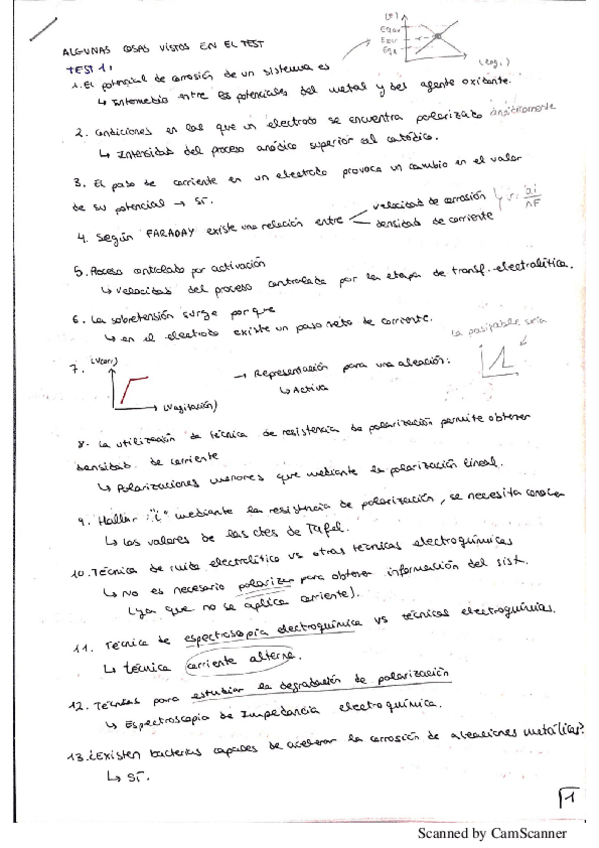 (E)
Ecorr
(log.)
ALGUNAS COSAS VISTOS EN EL TEST
TEST 1:
1. El potencial de corrosión de un sistema es
↳ Intermedio entre los potenciales del metal y del agente oxidante.
2. Condiciones en las que un electrodo se encuentra polarizado anódicamente
↳ Intensidad del proceso anódico superior al catódico.
3. El paso de corriente en un electrodo provoca un cambio en el valor
de su potencial → Sí.
4. Según FARADAY existe una relación entre
velocidad de corrosión
densidad de corriente
5. Proceso controlado por activación
↳ Velocidad del proceso controlada por la etapa de transf. electrolítica.
6. La sobretensión surge porque
↳ en el electrodo existe un paso neto de corriente.
la pasivable sería
7. (Vcorr)
(Vagitación)
→ Representación para una aleación:
↳ Activa
8. La utilización de técnica de resistencia de polarización permite obtener
densidad de corriente
↳ Polarizaciones menores que mediante la polarización lineal.
9. Hallar "i" mediante la resistencia de polarización, se necesita conocer
↳ Los valores de las ctes de Tafel.
10. Técnica de ruido electrolítico vs otras técnicas electroquímicas
↳ No es necesario polarizar para obtener información del sist.
(ya que no se aplica corriente).
11. Técnica de espectroscopia electroquímica vs técnicas electroquímicas.
↳ técnica corriente alterna.
12. Técnicas para estudiar la degradación de polarización
↳ Espectroscopia de Impedancia electroquímica.
13. ¿Existen bacterias capaces de acelerar la corrosión de aleaciones metálicas?
↳ Sí.
1
Scanned by CamScanner